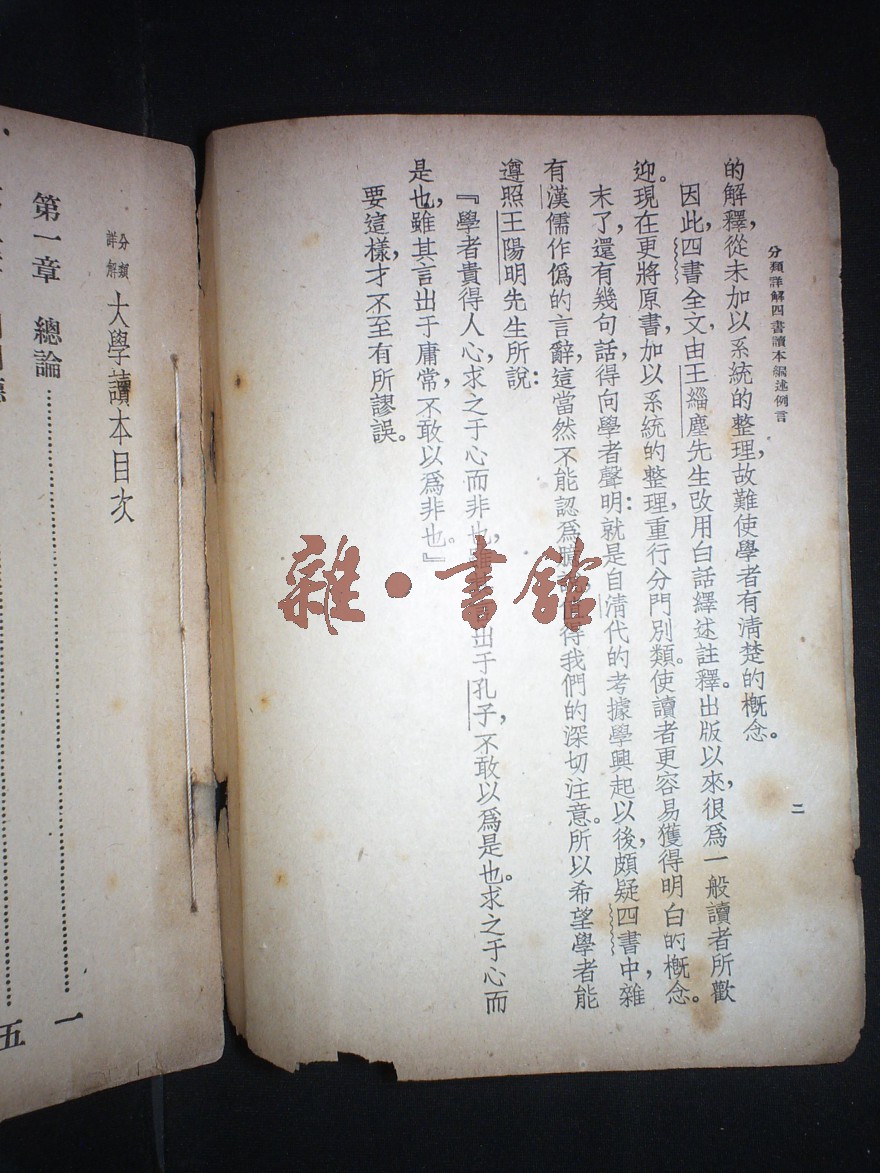 分類詳解四書讀本編述例言
二
的解釋，從未加以系統的整理，故難使學者有清楚的概念。
因此，四書全文，由王緇塵先生改用白話繹述註釋。出版以來，很爲一般讀者所歡
迎。現在更將原書，加以系統的整理，重行分門別類。使讀者更容易獲得明白的概念。
末了，還有幾句話，得向學者聲明：就是自清代的考據學興起以後，頗疑四書中，雜
有漢儒作僞的言辭，這當然不能認爲 得我們的深切注意。所以希望學者能
遵照王陽明先生所說：
『學者貴得人心，求之于心而非也，雖其言出于孔子，不敢以爲是也。求之于心而
是也，雖其言出于庸常，不敢以爲非也。』
要這樣，才不至有所謬誤。
分類詳解 大學讀本目次
第一章 總論……一
五
雜·書館